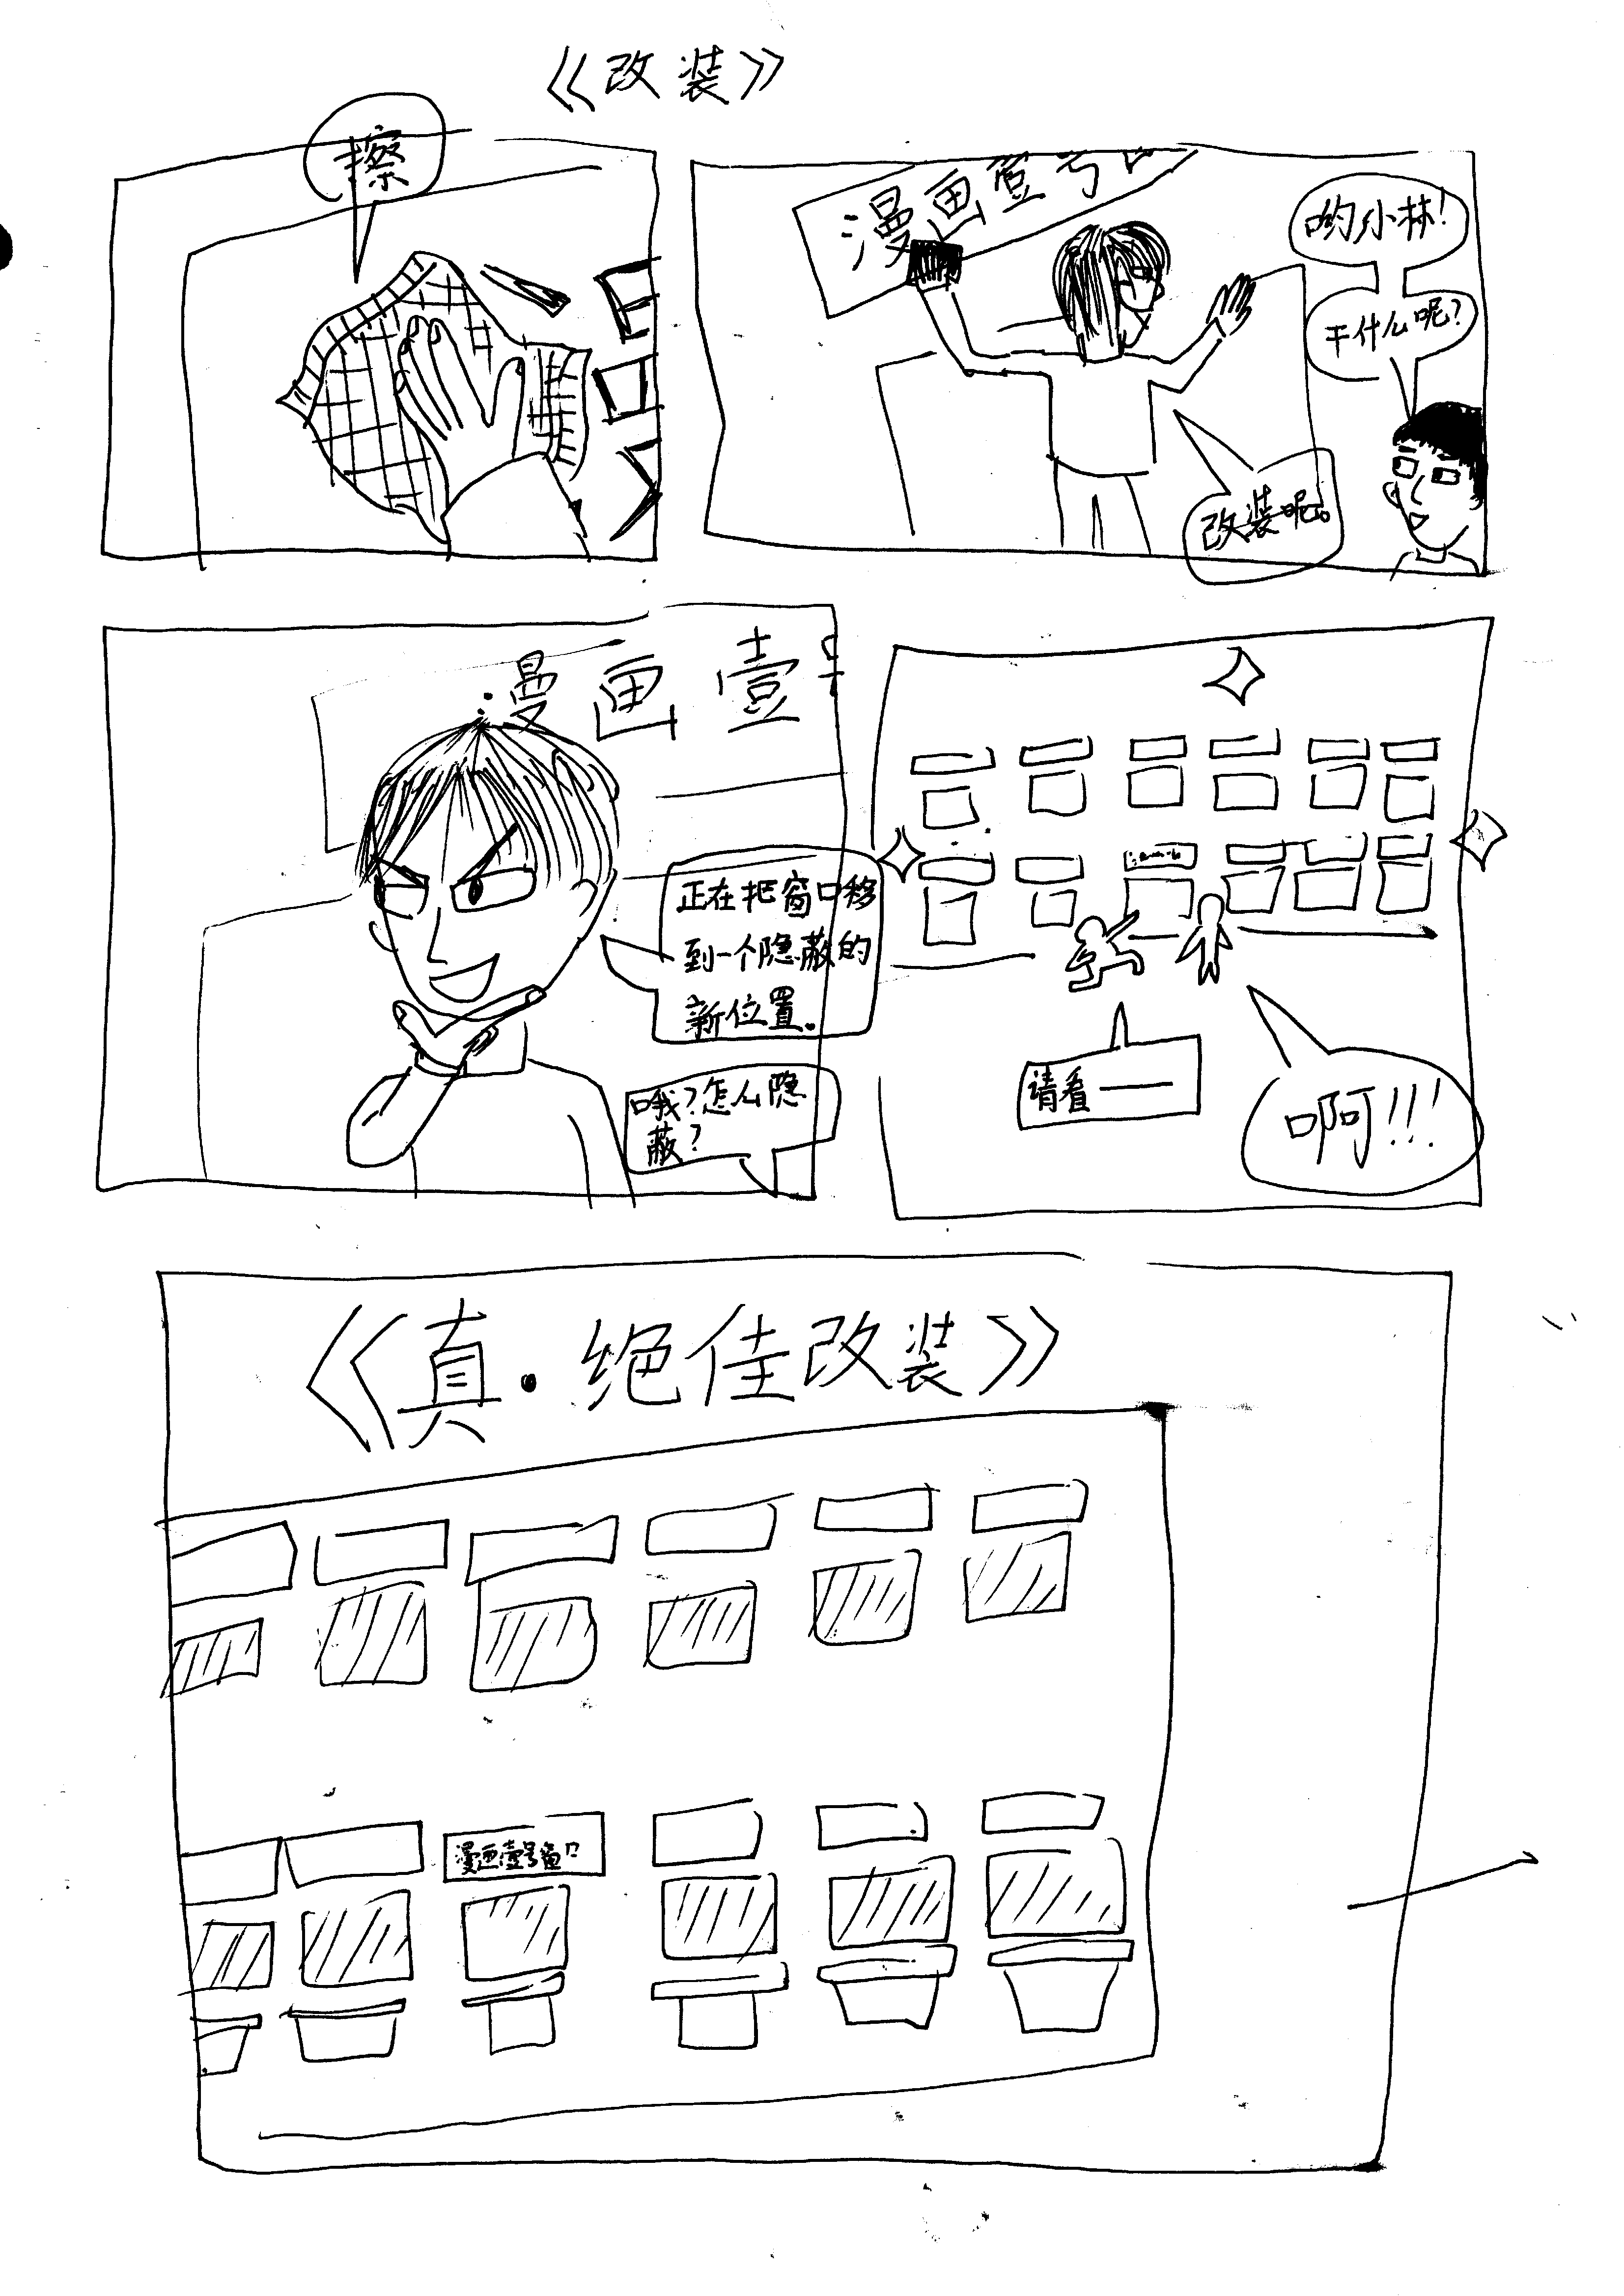 《改装》
擦
漫画壹号
哟小林！
干什么呢？
改装呢。
漫画壹号
正在把窗口移
到一个隐蔽的
新位置.
哦？怎么隐
蔽？
请看——
啊!!!
《真·绝佳改装》
漫画壹号窗口